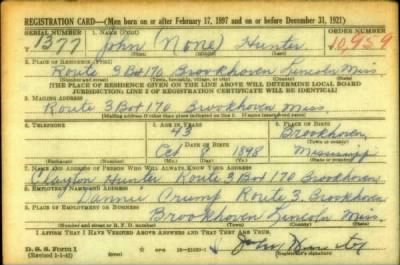 REGISTRATION CARD—(Men born on or after February 17, 1897 and on or before December 31, 1921)
SERIAL NUMBER 1. NAME (Print) ORDER NUMBER
T 1377 John (None) Hunter 10,959
2. PLACE OF RESIDENCE (Print)
Route 3 Box 170 Brookhaven Lincoln Miss
(Number and street) (Town, township, village, or city) (County) (State)
[THE PLACE OF RESIDENCE GIVEN ON THE LINE ABOVE WILL DETERMINE LOCAL BOARD
JURISDICTION; LINE 2 OF REGISTRATION CERTIFICATE WILL BE IDENTICAL]
3. MAILING ADDRESS
Route 3 Box 170 Brookhaven Miss.
(Mailing address if other than place indicated on line 2. If same insert word same)
4. TELEPHONE 5. AGE IN YEARS 6. PLACE OF BIRTH
43 Brookhaven
DATE OF BIRTH (Town or county)
Oct 1898 Mississippi
(Exchange) (Number) (Mo.) (Day) (Yr.) (State or country)
7. NAME AND ADDRESS OF PERSON WHO WILL ALWAYS KNOW YOUR ADDRESS
Clayton Hunter Route 3 Box 170 Brookhaven
8. EMPLOYER'S NAME AND ADDRESS
Dannie Crump Route 3. Brookhaven
9. PLACE OF EMPLOYMENT OR BUSINESS
Brookhaven Lincoln Miss.
(Number and street or R. F. D. number) (Town) (County) (State)
I AFFIRM THAT I HAVE VERIFIED ABOVE ANSWERS AND THAT THEY ARE TRUE.
D. S. S. Form 1 John Hunter
(Revised 1-1-42) (Registrant's signature)